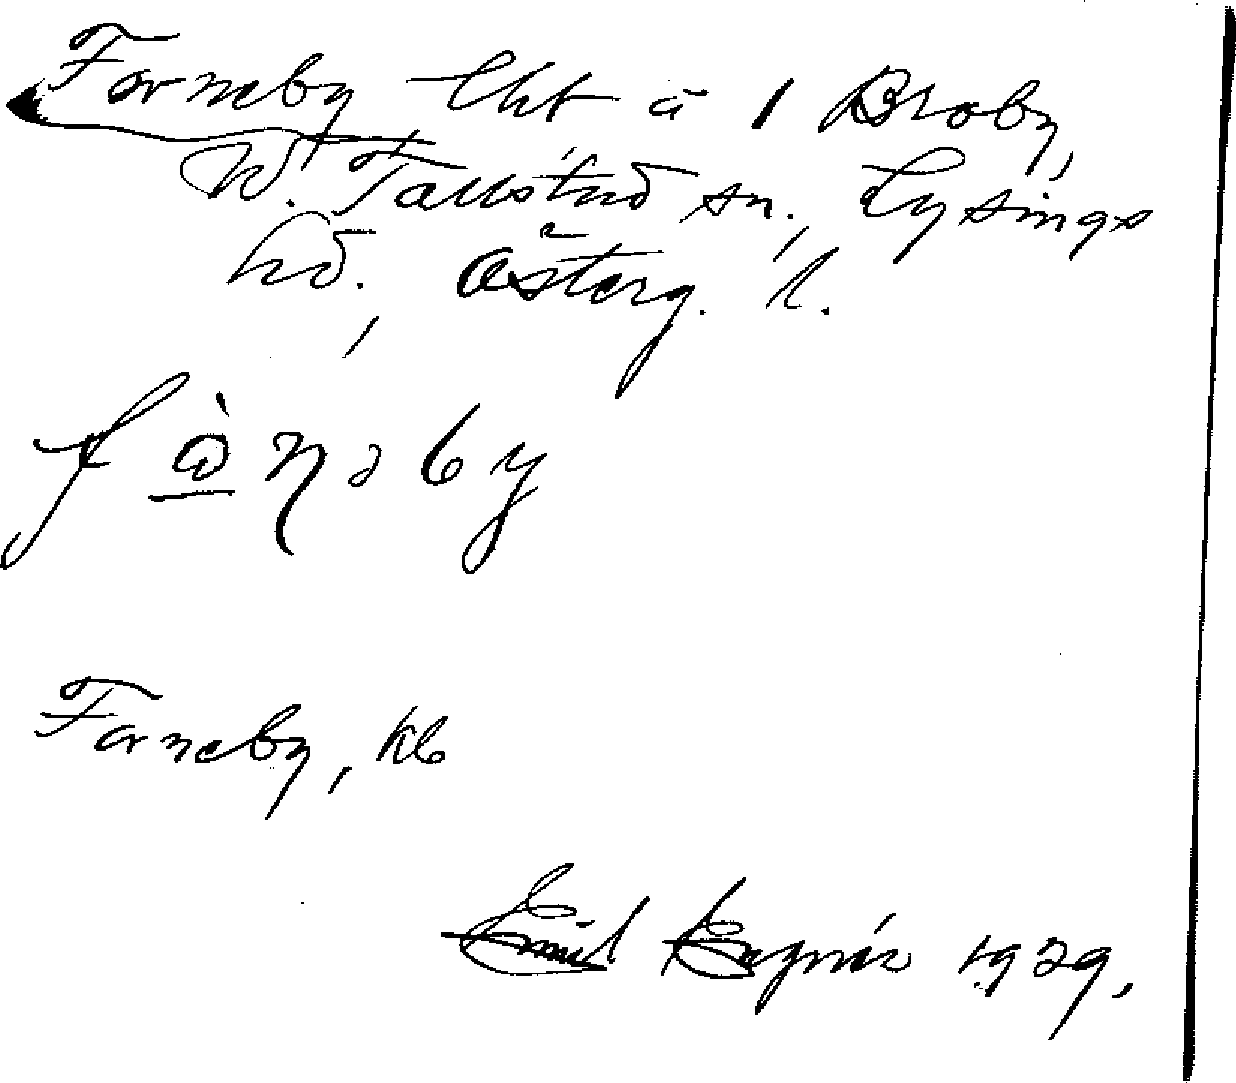 Forneby lht å 1 Broby,
V. Tollstad sn., Lysings
hd., Österg. l.
f ò̲ ɳ ə b y
Forneby, kb
Emil 1929.